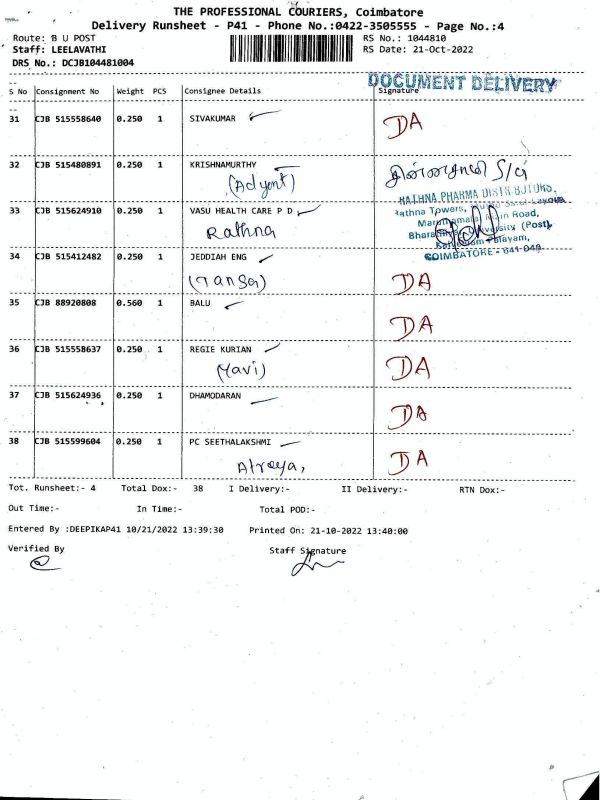 THE PROFESSIONAL COURIERS, Coimbatore
Delivery Runsheet - P41 - Phone No.:0422-3505555 - Page No.:4
Route: B U POST RS No.: 1044810
Staff: LEELAVATHI RS Date: 21-Oct-2022
DRS No.: DCJB104481004
DOCUMENT DELIVERY
S No Consignment No Weight PCS Consignee Details Signature
31 CJB 515558640 0.250 1 SIVAKUMAR DA
32 CJB 515480891 0.250 1 KRISHNAMURTHY
(Adyent) S/c
RATHNA PHARMA DISTRIBUTORS,
33 CJB 515624910 0.250 1 VASU HEALTH CARE P D Rathna Towers,
Rathna Main Road,
University (Post),
34 CJB 515412482 0.250 1 JEDDIAH ENG COIMBATORE - 641 046
(Tansa) DA
35 CJB 88920808 0.560 1 BALU DA
36 CJB 515558637 0.250 1 REGIE KURIAN DA
(Mavi)
37 CJB 515624936 0.250 1 DHAMODARAN DA
38 CJB 515599604 0.250 1 PC SEETHALAKSHMI DA
Atreya,
Tot. Runsheet:- 4 Total Dox:- 38 I Delivery:- II Delivery:- RTN Dox:-
Out Time:- In Time:- Total POD:-
Entered By :DEEPIKAP41 10/21/2022 13:39:30 Printed On: 21-10-2022 13:40:00
Verified By Staff Signature